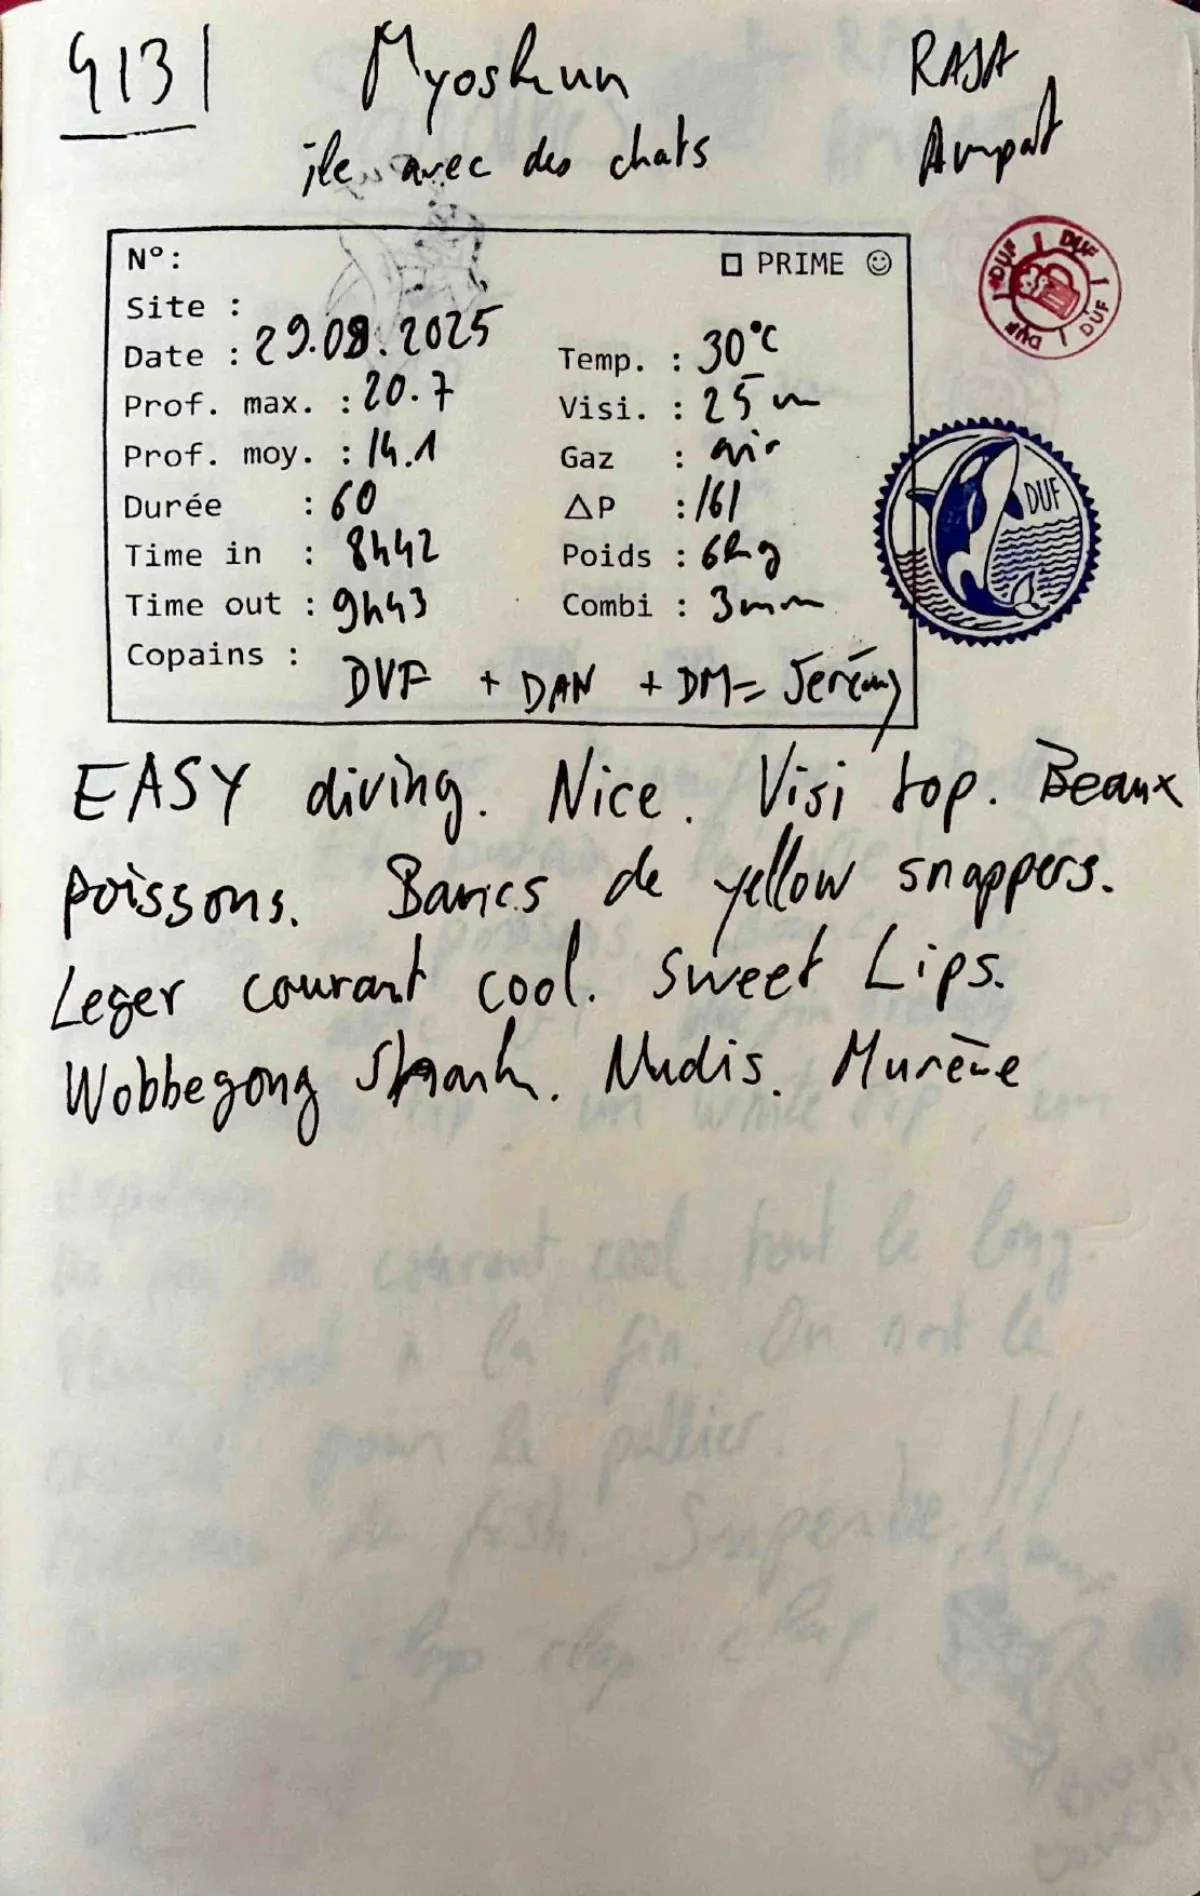 413 | Myoshun RAJA
île avec des chats Ampat
N°: PRIME
Site :
Date : 29.08.2025 Temp. : 30°C
Prof. max. : 20.7 Visi. : 25 m
Prof. moy. : 14.1 Gaz : air
Durée : 60 ΔP : 161
Time in : 8h42 Poids : 6kg
Time out : 9h43 Combi : 3mm
Copains : DUF + DAN + DM= Jerémy
DUF DUF DUF DUF
DUF
EASY diving. Nice. Visi top. Beaux
poissons. Bancs de yellow snappers.
Leger courant cool. Sweet Lips.
Wobbegong Shark. Nudis. Murène